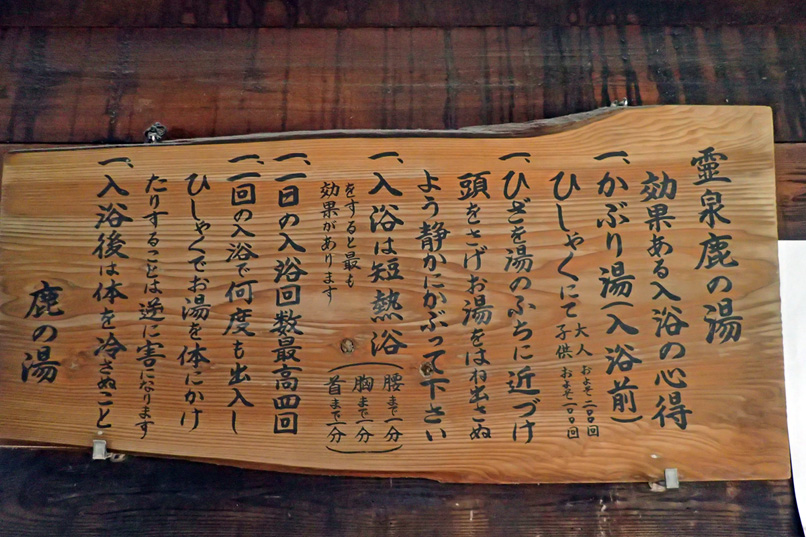 靈泉鹿の湯
効果ある入浴の心得
一、かぶり湯(入浴前)
ひしゃくにて
大人 およそ二〇〇回
子供 およそ一〇〇回
一、ひざを湯のふちに近づけ
頭をさげお湯をはね出さぬ
よう静かにかぶって下さい
一、入浴は短熱浴
(腰まで一分
胸まで一分
首まで一分)
をすると最も
効果があります
一、一日の入浴回数最高四回
一、一回の入浴で何度も出入し
ひしゃくでお湯を体にかけ
たりすることは逆に害になります
一、入浴後は体を冷さぬこと
鹿の湯